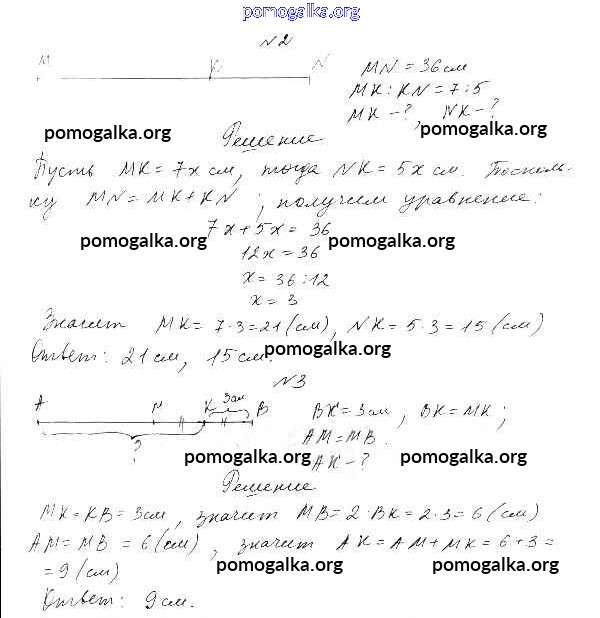 pomogalka.org
№2
M K N
MN = 36 см
MK : KN = 7 : 5
MK - ? , NK - ?
pomogalka.org pomogalka.org
Решение
Пусть MK = 7x см, тогда NK = 5x см. Посколь-
ку MN = MK + KN ; получим уравнение:
7x + 5x = 36
pomogalka.org pomogalka.org
12x = 36
x = 36 : 12
x = 3
Значит MK = 7 · 3 = 21 (см), NK = 5 · 3 = 15 (см)
Ответ: 21 см, 15 см.
pomogalka.org
№3
3 см
A M K B
?
BK = 3 см , BK = MK ;
AM = MB .
AK - ?
pomogalka.org pomogalka.org
Решение
MK = KB = 3 см, значит MB = 2 · BK = 2 · 3 = 6 (см)
AM = MB = 6 (см) , значит AK = AM + MK = 6 + 3 =
= 9 (см)
pomogalka.org pomogalka.org
Ответ: 9 см.